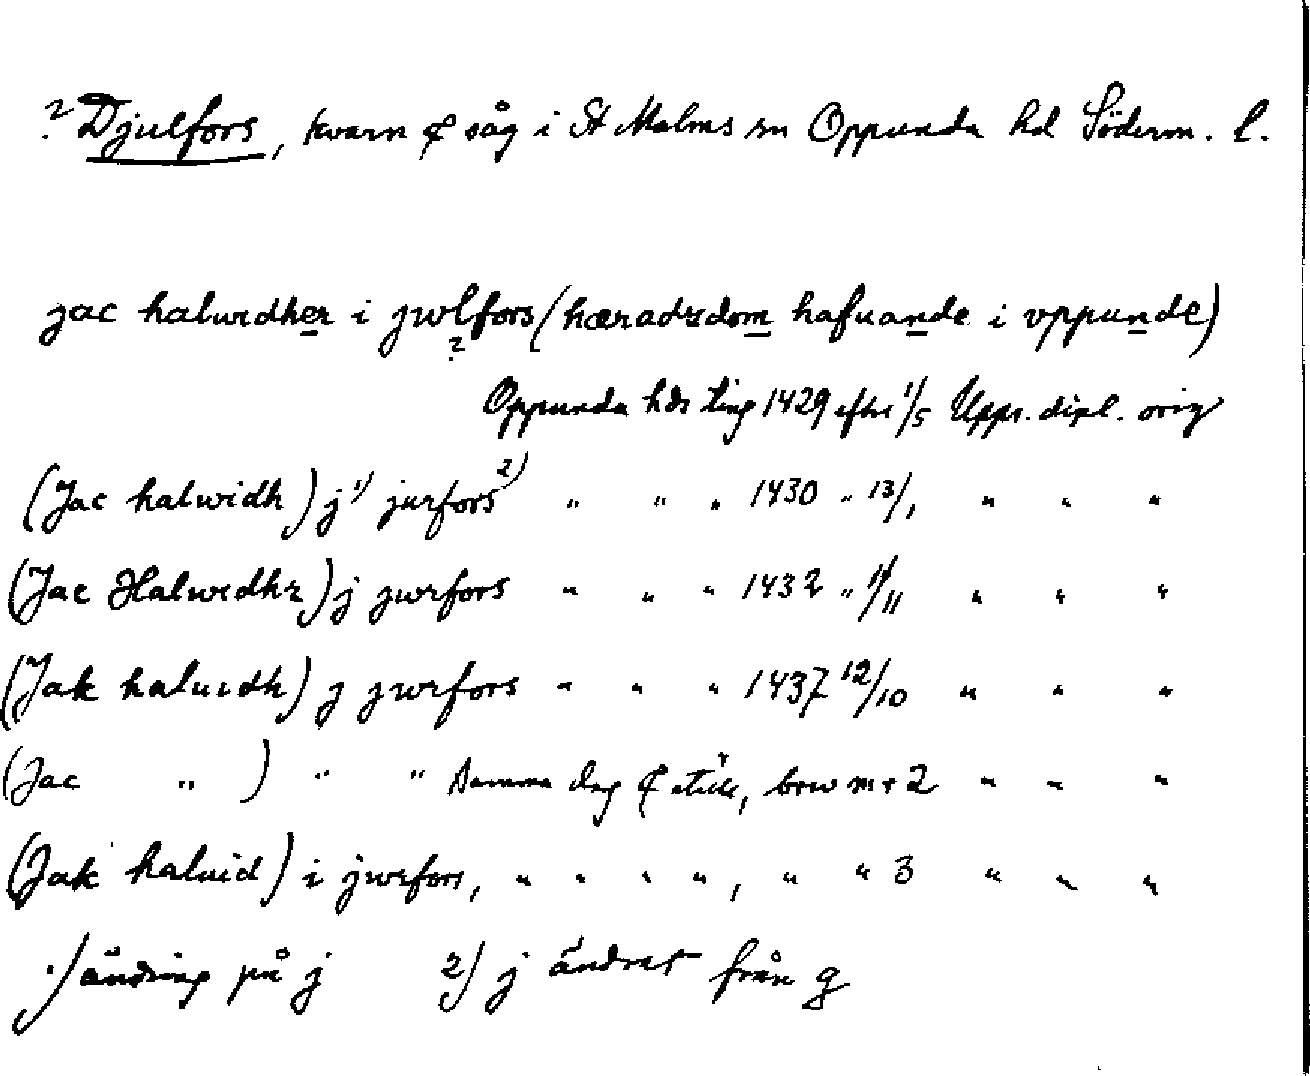 ? Djulfors, kvarn & såg i St Malms sn Oppunda hd Söderm. l.
jac halwidher i jwlfors (hæradzdom hafuande i vppunde)
?
Oppunda hds ting 1429 efter 1/5 Upps. dipl. orig
(Jac halwidh) j 1) jurfors 2) " " " 1430 " 13/1 " " "
(Jac Halwidhr) j jwrfors " " " 1432 " 11/11 " " "
(Jak haluidh) j jwrfors " " " 1437 12/10 " " "
(Jac " ) " " Samma dag & ställe, brev nr 2 " " "
(Jak haluid) i jwrfors, " " " ", " " 3 " " "
1) ändring på j 2) j ändrat från g